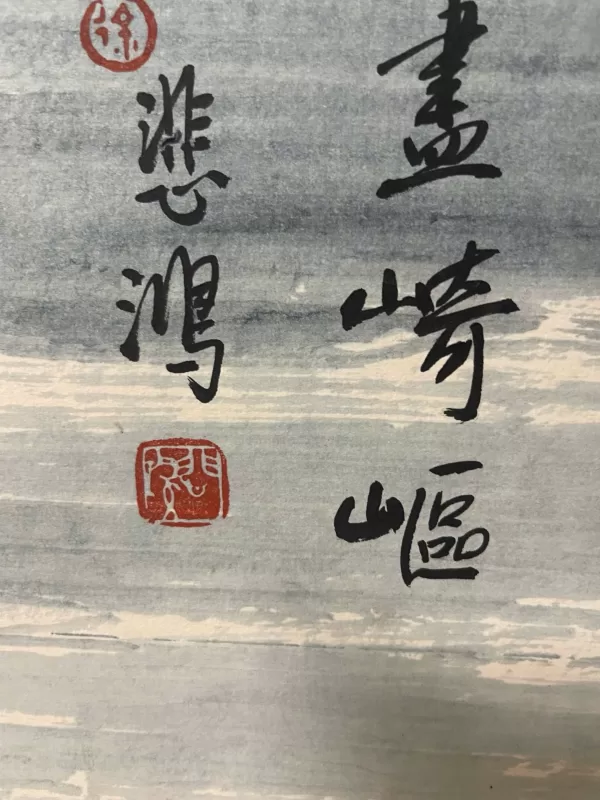 盡崎嶇
徐
悲鴻